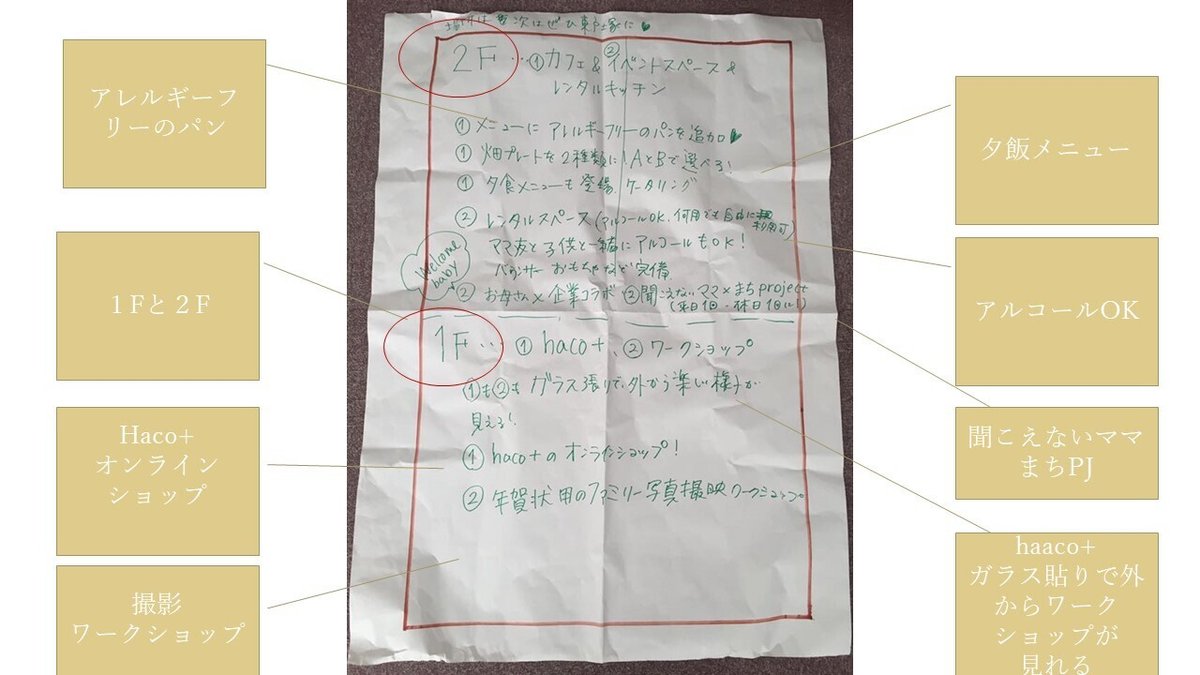 アレルギーフ
リーのパン
１Fと２F
Haco+
オンライン
ショップ
撮影
ワークショップ
場所は 次はぜひ東戸塚に
2F…①カフェ&②イベントスペース&
レンタルキッチン
①メニューに アレルギーフリーのパンを追加
①畑プレートを2種類に!AとBで選べる!
①夕食メニューも登場、ケータリング
②レンタルスペース(アルコールOK、何用でも自由に
利用可)
ママ友と子供と一緒にアルコールもOK!
バウンサー おもちゃなど完備
Welcome
baby
②お母さん×企業コラボ ②聞こえないママ×まちproject
(平日1回・休日1回
1F… ①haco+、②ワークショップ
①も②も ガラス張りで、外から楽しい様子が
見える!
①haco+のオンラインショップ!
②年賀状用のファミリー写真撮映ワークショップ
夕飯メニュー
アルコールOK
聞こえないママ
まちPJ
haaco+
ガラス貼りで外
からワーク
ショップが
見れる